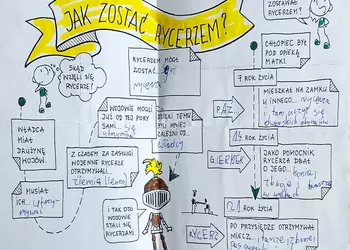 JAK ZOSTAĆ RYCERZEM?
ZOSTAWAŁO SIĘ
RYCERZEM?
SKĄD
WZIĘLI SIĘ
RYCERZE?
RYCERZEM MÓGŁ
ZOSTAĆ
CHŁOPIEC BYŁ
POD OPIEKĄ
MATKI
7 ROK ŻYCIA
MIESZKAŁ NA ZAMKU
U INNEGO... rycerza
i tam uczył się
PAŹ
WOJOWIE MOGLI
JUŻ OD TEJ PORY
SAMI
DZIĘKI TEMU
BYLI MNIEJ
ZALEŻNI OD...
władcy
WŁADCA
MIAŁ
DRUŻYNĘ
WOJÓW.
Z CZASEM ZA ZASŁUGI
WOJENNE RYCERZE
OTRZYMYWALI...
Ziemię
MUSIAŁ
ICH...
GIERMEK
ROK ŻYCIA
JAKO POMOCNIK
RYCERZA DBAŁ
O JEGO... konie
zbroję
I TAK OTO
WOJOWIE
STALI SIĘ
RYCERZAMI
21 ROK ŻYCIA
RYCERZ
PO PRZYSIĘDZE OTRZYMYWAŁ
MIECZ...